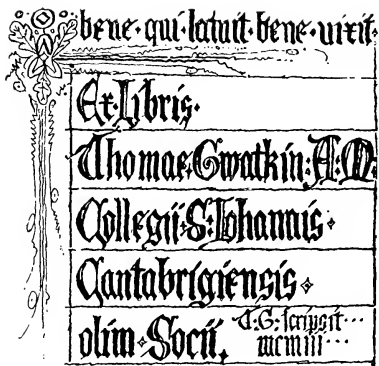 bene·qui·latuit·bene·vixit·
Ex·Libris·
Thomae·Gwatkin:A:M·
Collegii·S:Iohannis·
Cantabrigiensis·
olim·Socii.
T:G:scripsit···
mcmiii···